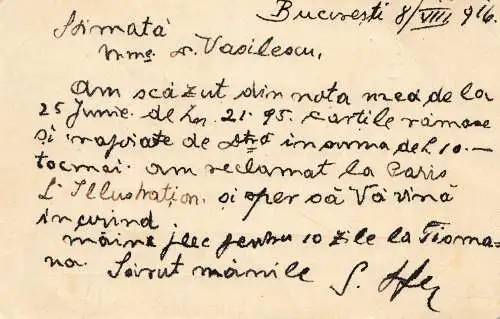 București 8/VIII 916.
Stimată
Mme. Vasilescu,
Am scăzut din nota mea de la
25 Iunie de Ln. 21.95. cărțile rămase
și de Dtră în suma de L 10.—
tocmai. Am reclamat la Paris
L'Illustration. și sper să Vă vină
în curînd.
Mâine plec pentru 10 zile la Tisma-
na. Sărut mânile S.